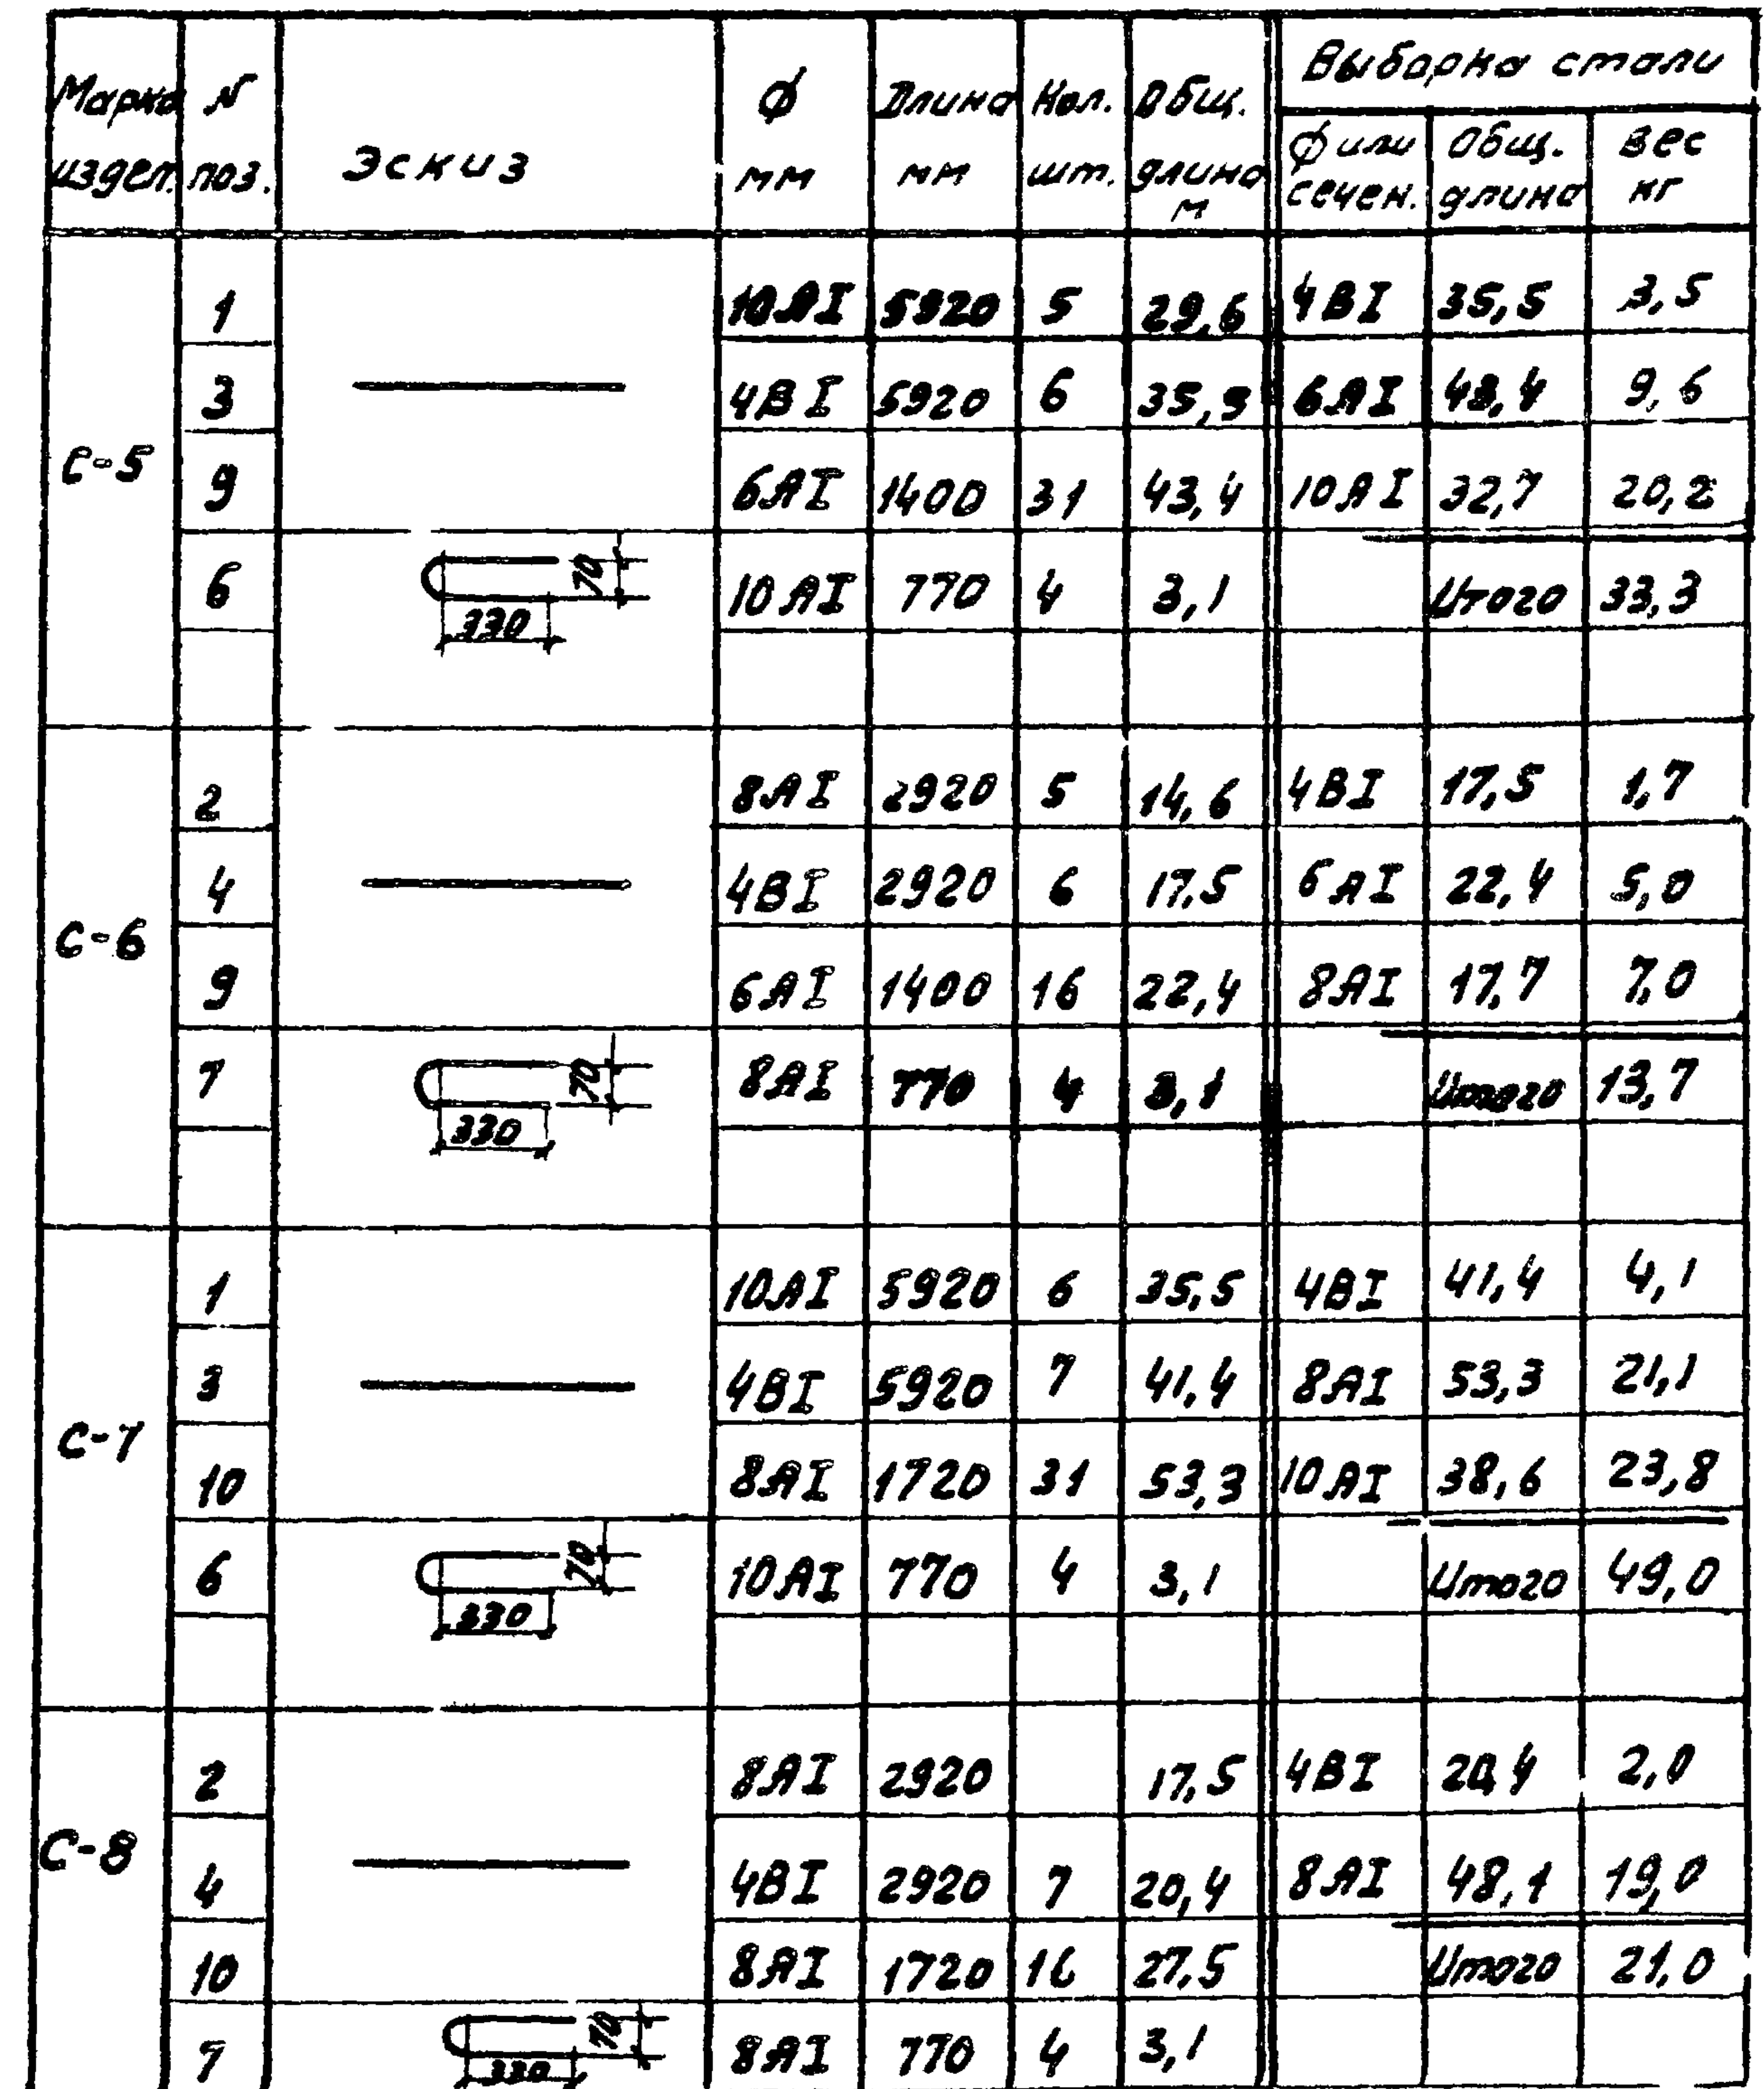 Марка издел. N поз. Эскиз ф мм Длина мм Кол. шт. Общ. длина м Выборка стали
ф или сечен. Общ. длина вес кг
С-5
1 10АI 5920 5 29,6 4ВI 35,5 3,5
3 4ВI 5920 6 35,5 6АI 43,4 9,6
9 6АI 1400 31 43,4 10АI 32,7 20,2
6 330 70 10АI 770 4 3,1 Итого 33,3
С-6
2 8АI 2920 5 14,6 4ВI 17,5 1,7
4 4ВI 2920 6 17,5 6АI 22,4 5,0
9 6АI 1400 16 22,4 8АI 17,7 7,0
7 330 70 8АI 770 4 3,1 Итого 13,7
С-7
1 10АI 5920 6 35,5 4ВI 41,4 4,1
3 4ВI 5920 7 41,4 8АI 53,3 21,1
10 8АI 1720 31 53,3 10АI 38,6 23,8
6 330 70 10АI 770 4 3,1 Итого 49,0
С-8
2 8АI 2920 17,5 4ВI 20,4 2,0
4 4ВI 2920 7 20,4 8АI 48,1 19,0
10 8АI 1720 16 27,5 Итого 21,0
7 330 70 8АI 770 4 3,1